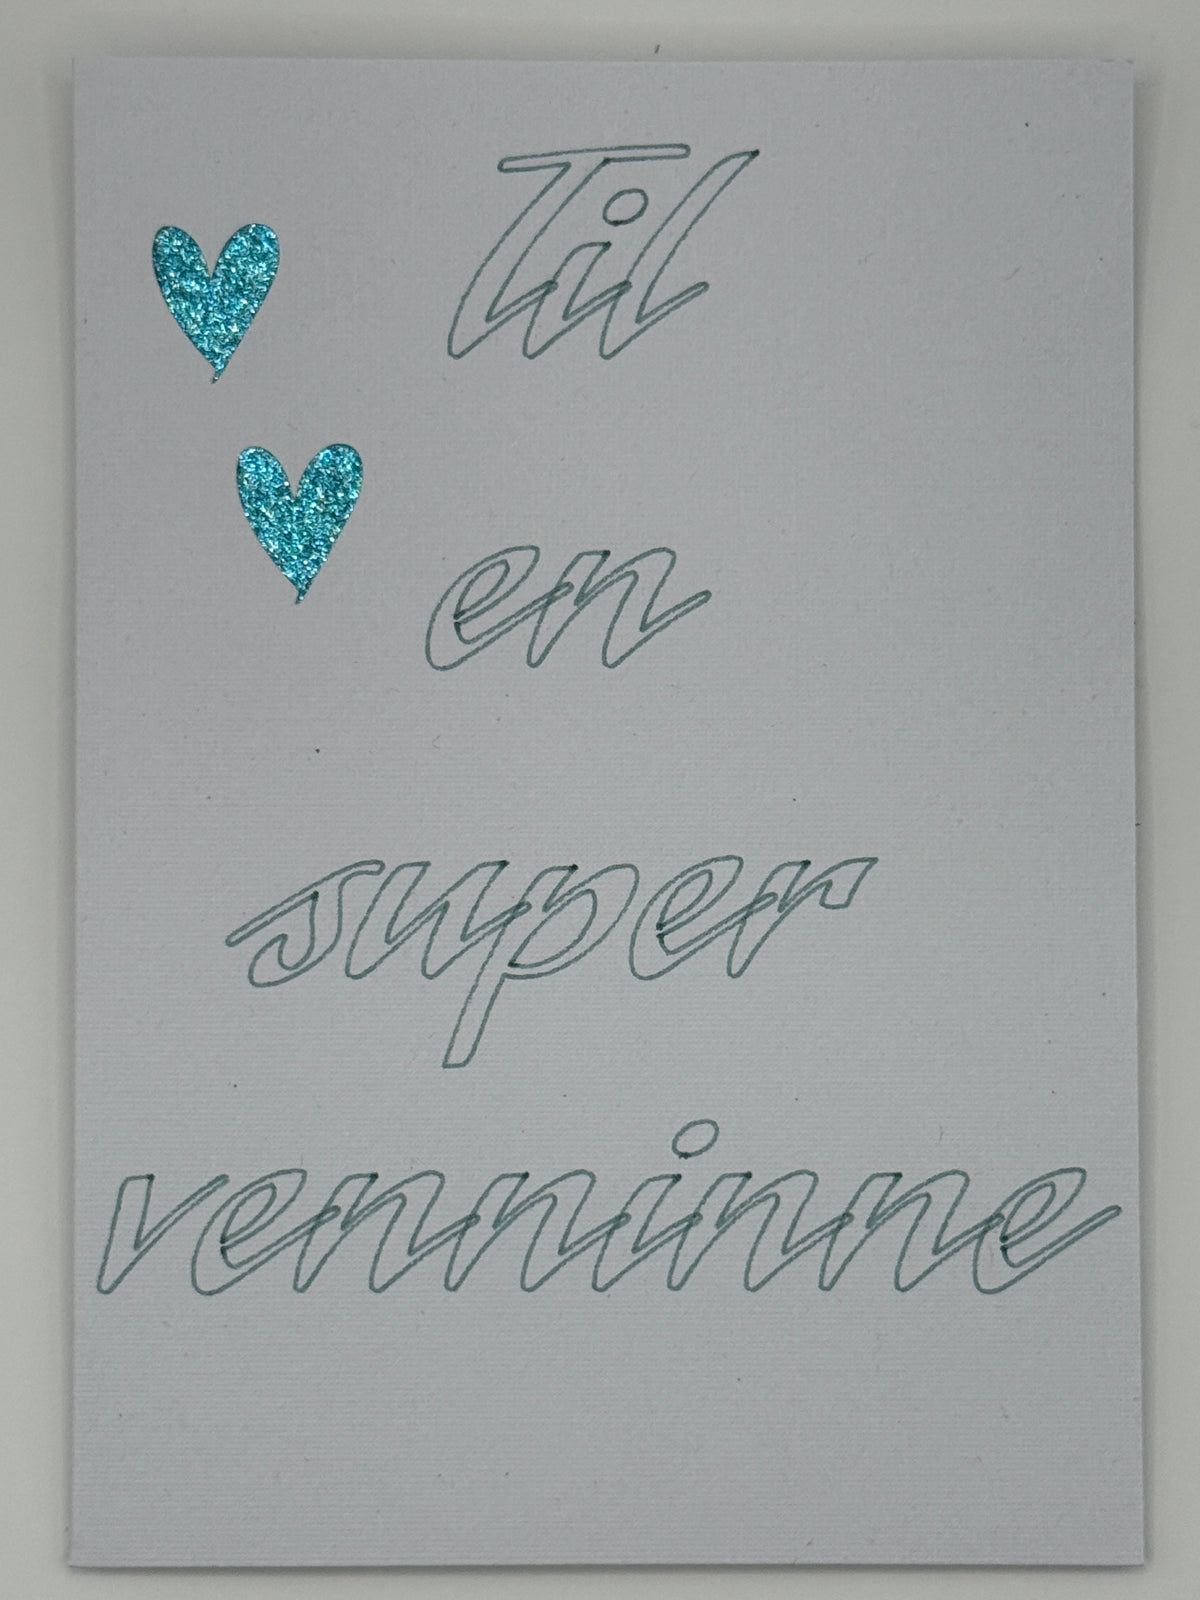 Til
en
super
venninne